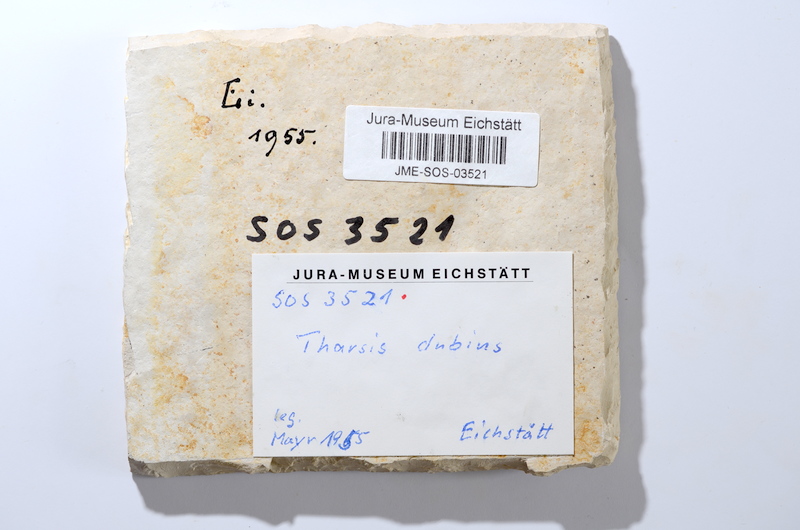 Ei.
1955.
Jura-Museum Eichstätt
JME-SOS-03521
SOS 3521
JURA-MUSEUM EICHSTÄTT
SOS 3521
Tharsis dubius
leg.
Mayr 1955
Eichstätt